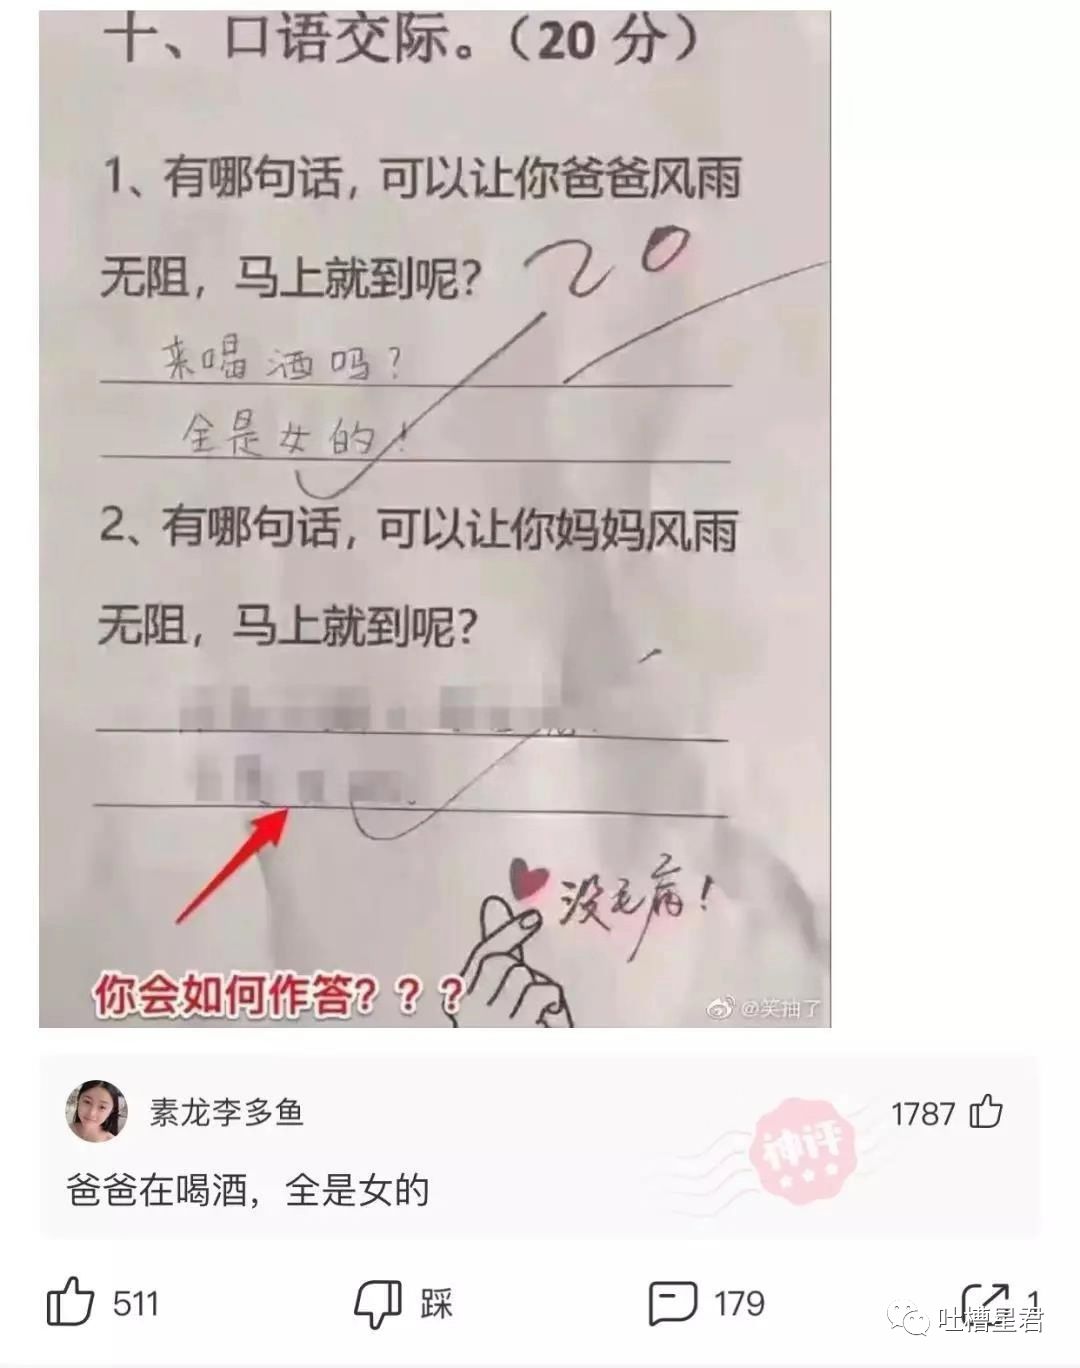 十、口语交际。（20 分）
1、有哪句话，可以让你爸爸风雨
无阻，马上就到呢？
20
来喝酒吗？
全是女的！
2、有哪句话，可以让你妈妈风雨
无阻，马上就到呢？
没毛病！
你会如何作答？？？
@笑抽了
素龙李多鱼
神评
1787
爸爸在喝酒，全是女的
511
踩
179
1
吐槽星君